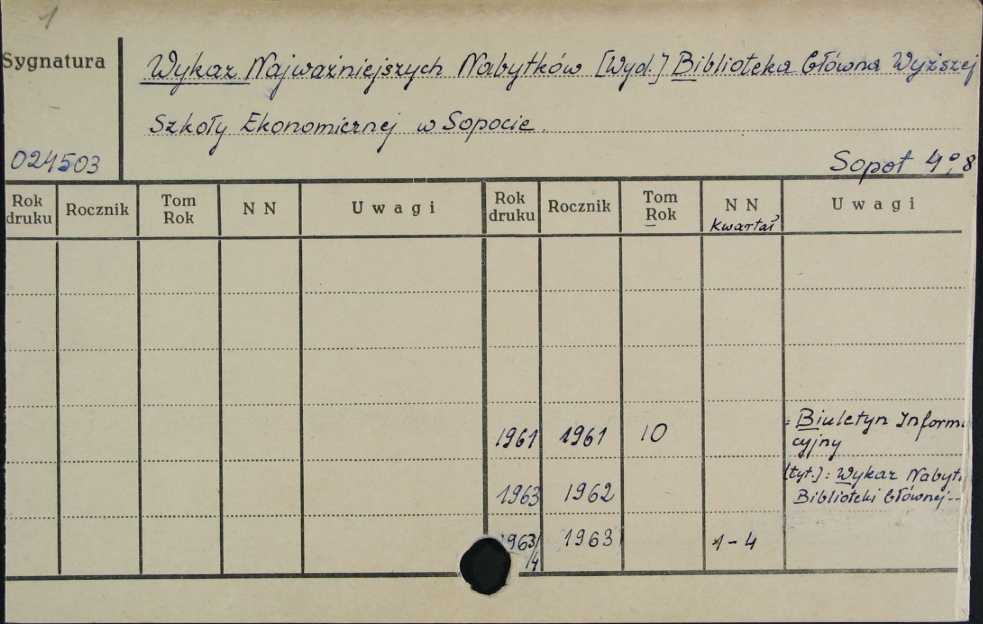 1
Sygnatura
Wykaz Najważniejszych Nabytków [Wyd.] Biblioteka Główna Wyższej
Szkoły Ekonomicznej w Sopocie.
024503
Sopot 4°, 8
Rok druku Rocznik Tom Rok N N Uwagi Rok druku Rocznik Tom Rok N N kwartał Uwagi
1961 1961 10 = Biuletyn Inform
cyjny
1963 1962 [tyt.]: Wykaz Nabyt.
Biblioteki Głównej--
1963/4 1963 1-4